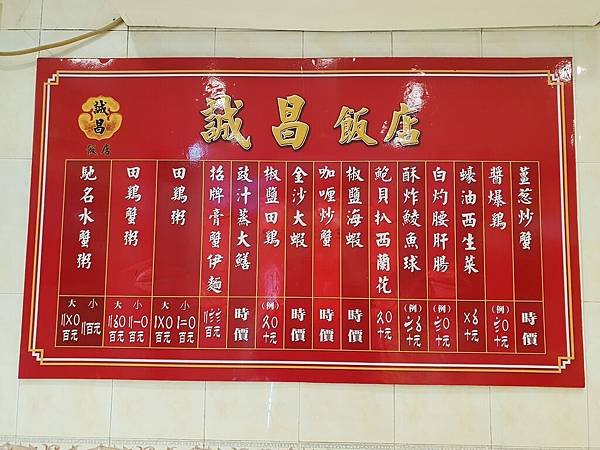 誠昌
飯店
誠昌飯店
薑葱炒蟹
時價
醬爆鷄
(例)
十元
蠔油西生菜
十元
白灼腰肝腸
(例)
十元
酥炸鯪魚球
(例)
十元
鮑貝扒西蘭花
十元
椒鹽海蝦
時價
咖喱炒蟹
時價
金沙大蝦
時價
椒鹽田鷄
(例)
十元
豉汁蒸大鱔
時價
招牌膏蟹伊麵
百元
田鷄粥
小
百元
大
百元
田鷄蟹粥
小
百元
大
百元
馳名水蟹粥
小
百元
大
百元